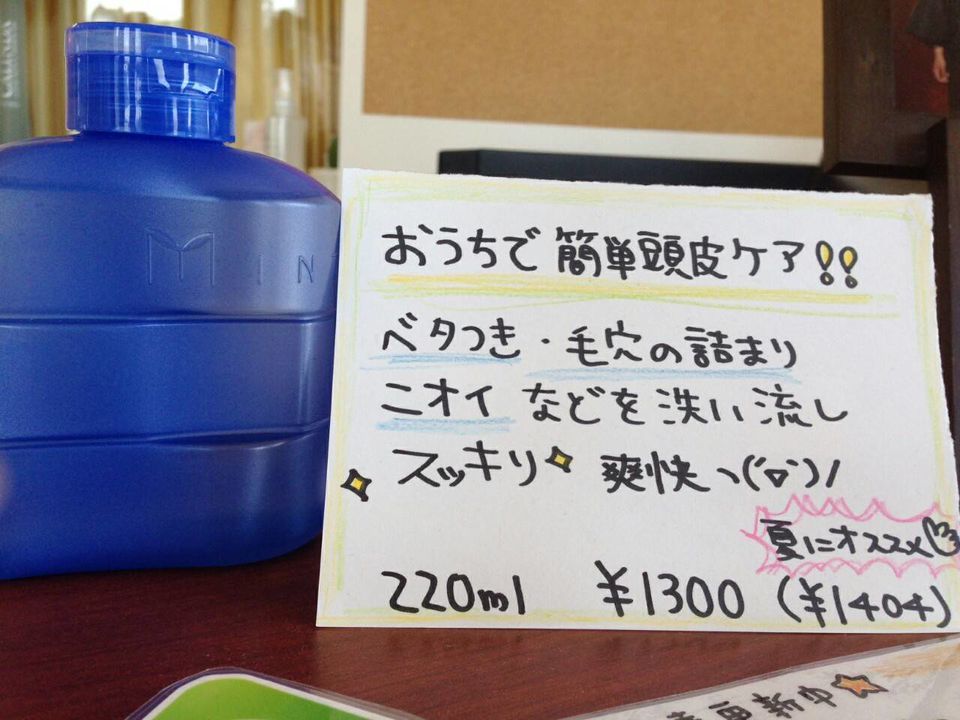 MIN
おうちで簡単頭皮ケア!!
ベタつき・毛穴の詰まり
ニオイなどを洗い流し
スッキリ 爽快ヽ('▽')ノ
夏にオススメ
220ml ¥1300 (¥1404)
更新中